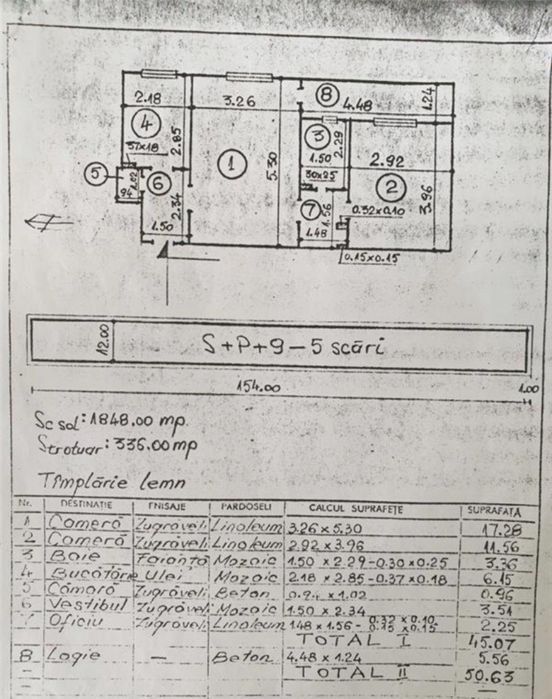 2.18
3.26
8
4.48
1.24
4
37x18
2.85
1
5.30
3
2.29
1.50
30x25
2.92
2
3.96
5
1.02
94
6
2.34
1.50
7
1.56
1.48
0.32x0.10
0.15x0.15
12.00
S+P+9-5 scări
154.00
1.00
Sc sol: 1848.00 mp.
Strotuar: 336.00 mp
Timplărie lemn
Nr. DESTINAȚIE FNISAJE PARDOSELI CALCUL SUPRAFEȚE SUPRAFAȚĂ
1 Cameră Zugrăveli Linoleum 3.26 x 5.30 17.28
2 Cameră Zugrăveli Linoleum 2.92 x 3.96 11.56
3 Baie Faianță Mozaic 1.50 x 2.29-0.30 x 0.25 3.36
4 Bucătărie Ulei Mozaic 2.18 x 2.85-0.37 x 0.18 6.15
5 Cămară Zugrăveli Beton 0.94 x 1.02 0.96
6 Vestibul Zugrăveli Mozaic 1.50 x 2.34 3.51
7 Oficiu Zugrăveli Linoleum 1.48 x 1.56 - 0.32 x 0.10 0.15 x 0.15 2.25
TOTAL I 45.07
8 Logie — Beton 4.48 x 1.24 5.56
TOTAL II 50.63